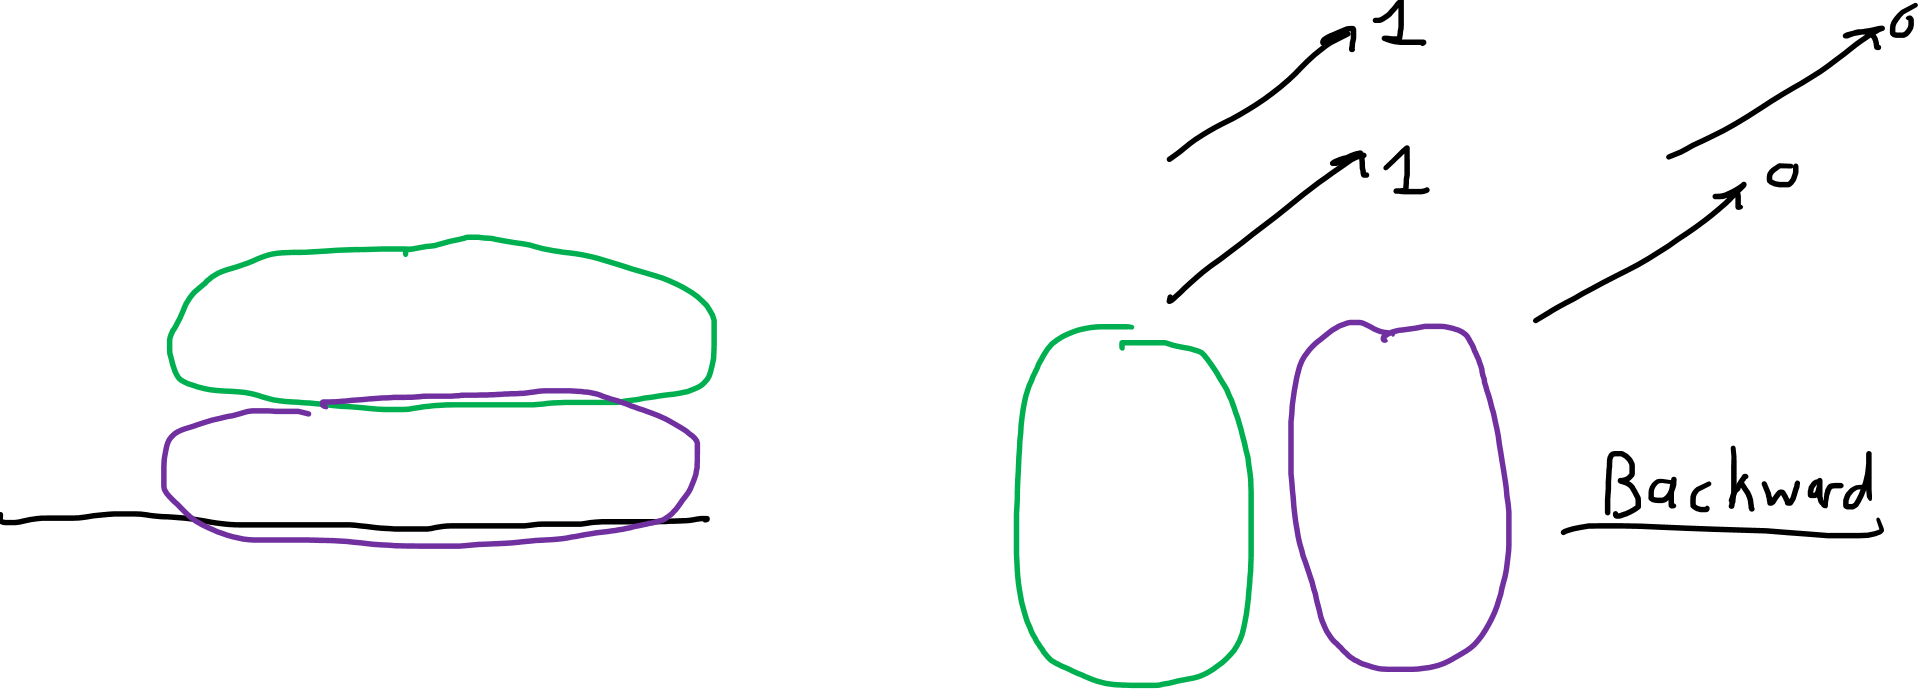 1 0
1 0
Backward